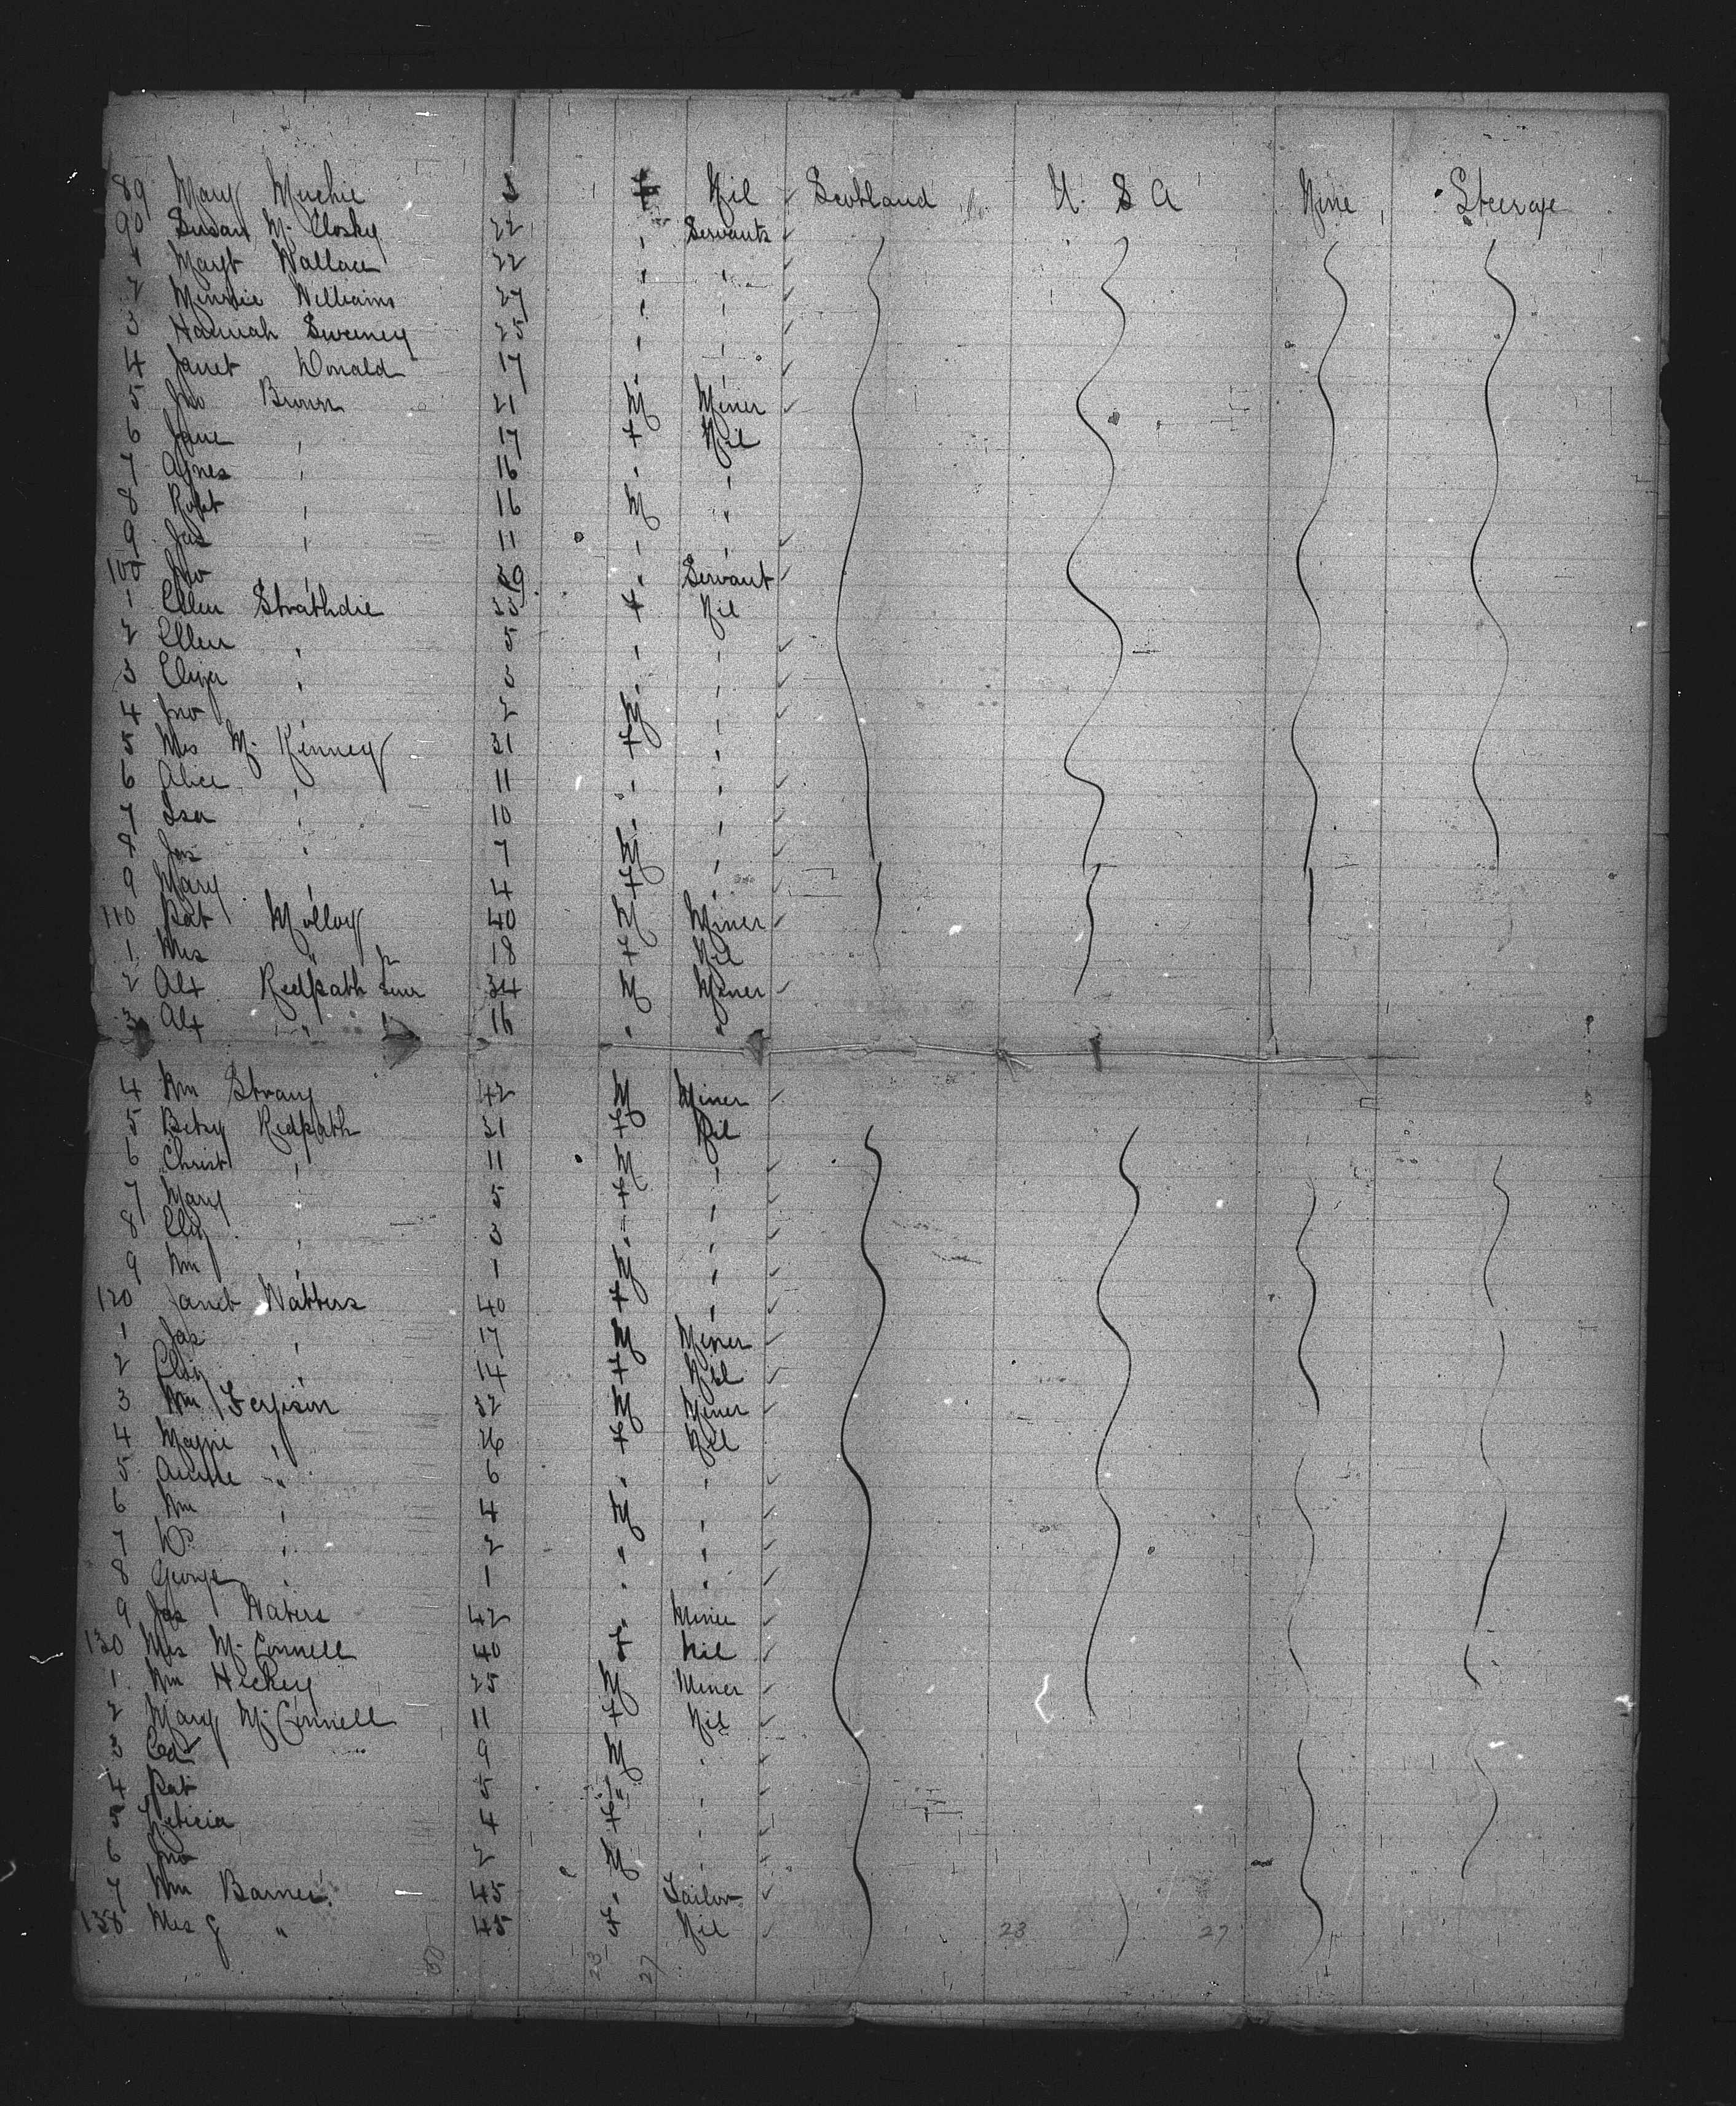 89 Mary Muchie 3 F Nil Scotland U. S A Nine Steerage
90 Susan Mc Closky 22 " Servants
1 Margt Wallace 22 " "
2 Minnie Williams 27 " "
3 Hannah Sweeney 25 " "
4 Janet Donald 17 " "
5 Jno Brown 21 M Miner
6 Jane " 17 F Nil
7 Agnes " 16 " "
8 Robt " 16 M "
9 Jas " 11 " "
100 Jno " 39 " Servant
1 Ellen Strathdie 35 F Nil
2 Ellen " 5 " "
3 Eliza " 3 " "
4 Jno " 2 M "
5 Mrs Mc Kenney 31 F "
6 Alice " 11 " "
7 Isa " 10 " "
8 Jas " 7 M "
9 Mary " 4 F "
110 Pat Molloy 40 M Miner
1 Mrs " 18 F Nil
2 Alx Redpath Senr 34 M Miner
3 Alx " 16 " "
4 Wm Strang 42 M Miner
5 Betsy Redpath 31 F Nil
6 Christ " 11 M "
7 Mary " 5 F "
8 Eliz " 3 " "
9 Wm " 1 M "
120 Janet Watters 40 F "
1 Jas " 17 M Miner
2 Eliz " 14 F Nil
3 Wm Ferguson 32 M Miner
4 Maggie " 26 F Nil
5 Annie " 6 " "
6 Wm " 4 M "
7 Do " 2 " "
8 George " 1 " "
9 Jas Waters 42 " Miner
130 Mrs Mc Connell 40 F Nil
1 Wm Hickey 25 M Miner
2 Mary Mc Connell 11 F Nil
3 Ed 9 M "
4 Pat 5 " "
5 Leticia 4 F "
6 Jno 2 M "
7 Wm Barnes 45 " Tailor
138 Mrs J " 45 F Nil 23 27
23 27